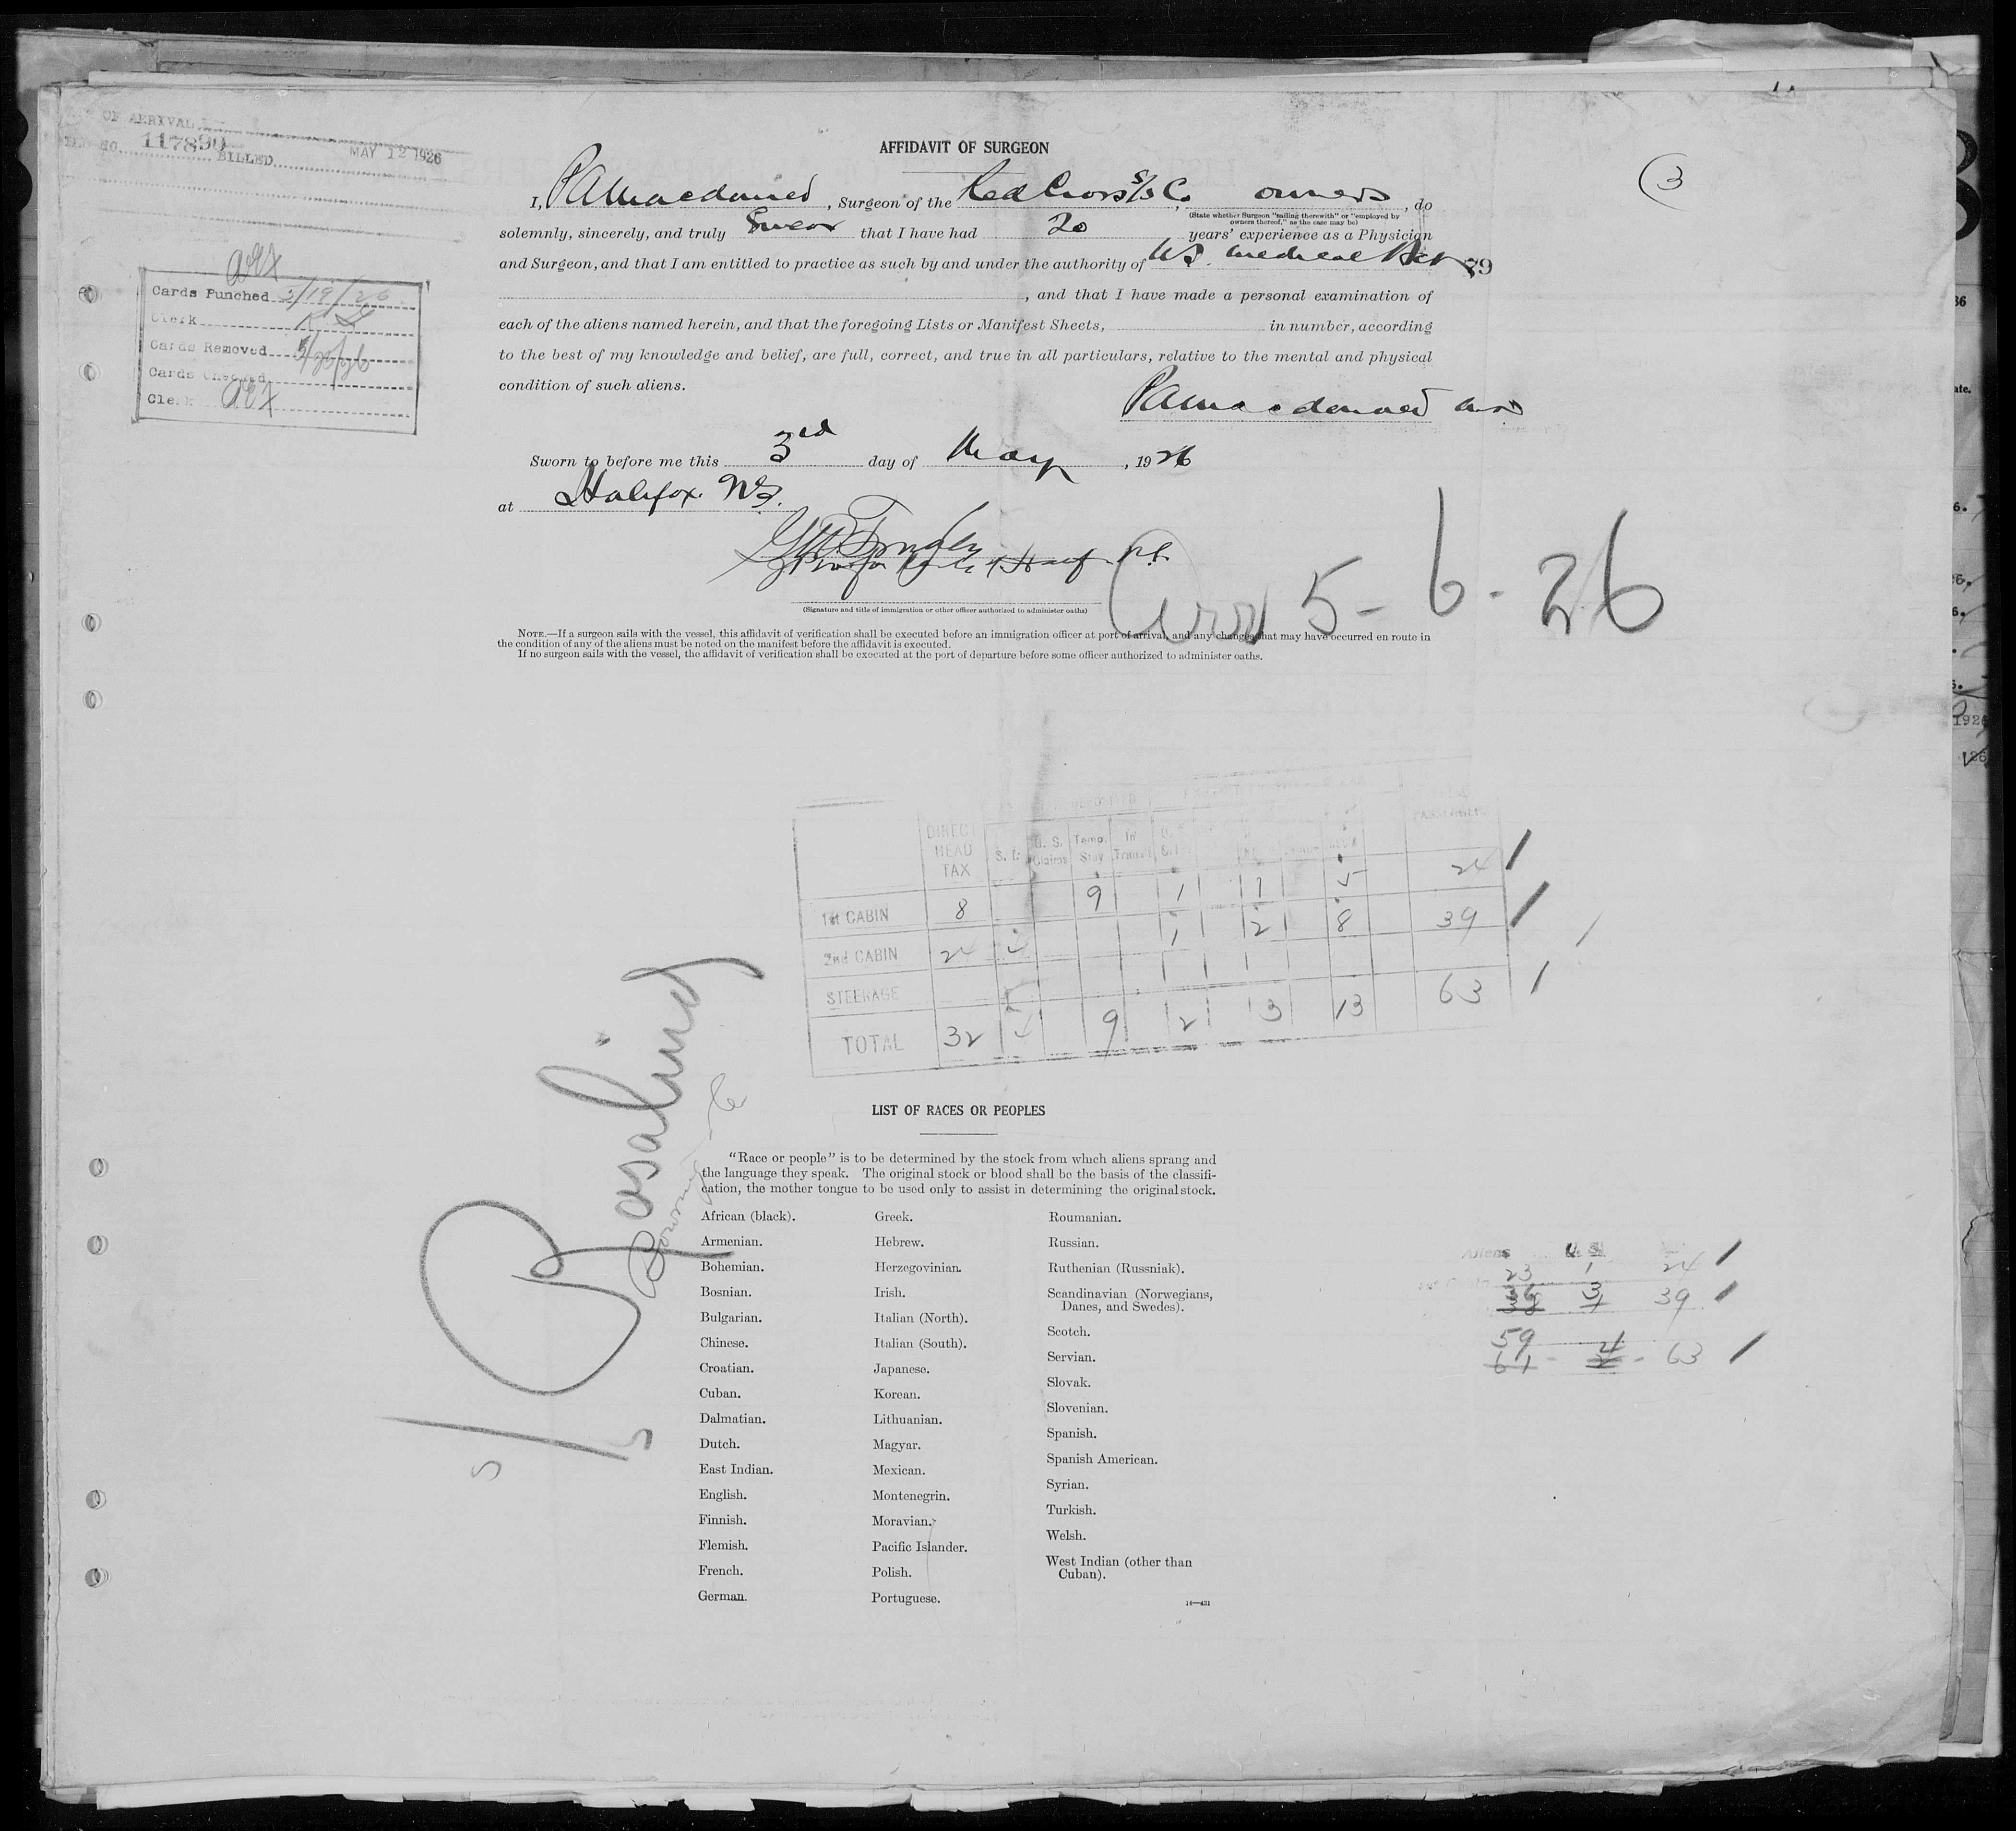 OF ARRIVAL
NO. 117890 BILLED MAY 12 1926
AFFIDAVIT OF SURGEON
3
I, PA Macdonald, Surgeon of the Red Cross S/S Co, owners, do
(State whether Surgeon "sailing therewith" or "employed by
owners thereof," as the case may be)
solemnly, sincerely, and truly Swear that I have had 20 years' experience as a Physician
and Surgeon, and that I am entitled to practice as such by and under the authority of NS. Medical Act
, and that I have made a personal examination of
each of the aliens named herein, and that the foregoing Lists or Manifest Sheets, in number, according
to the best of my knowledge and belief, are full, correct, and true in all particulars, relative to the mental and physical
condition of such aliens.
PA Macdonald MD
Cards Punched 5/19/26
Clerk
Cards Removed 5/20/26
Cards Checked
Clerk
Sworn to before me this 3rd day of May, 1926
at Halifax. NS.
(Signature and title of immigration or other officer authorized to administer oaths)
Arr 5-6-26
NOTE.—If a surgeon sails with the vessel, this affidavit of verification shall be executed before an immigration officer at port of arrival, and any changes that may have occurred en route in
the condition of any of the aliens must be noted on the manifest before the affidavit is executed.
If no surgeon sails with the vessel, the affidavit of verification shall be executed at the port of departure before some officer authorized to administer oaths.
DIRECT HEAD TAX S. I. U. S. Claims Temp. Stay In Transit
1st CABIN 8 9 1 1 5 24
2nd CABIN 24 1 2 8 39
STEERAGE
TOTAL 32 9 2 3 13 63
S/S Rosalind
Bowring & Co
LIST OF RACES OR PEOPLES
"Race or people" is to be determined by the stock from which aliens sprang and
the language they speak. The original stock or blood shall be the basis of the classifi-
cation, the mother tongue to be used only to assist in determining the original stock.
African (black).
Armenian.
Bohemian.
Bosnian.
Bulgarian.
Chinese.
Croatian.
Cuban.
Dalmatian.
Dutch.
East Indian.
English.
Finnish.
Flemish.
French.
German.
Greek.
Hebrew.
Herzegovinian.
Irish.
Italian (North).
Italian (South).
Japanese.
Korean.
Lithuanian.
Magyar.
Mexican.
Montenegrin.
Moravian.
Pacific Islander.
Polish.
Portuguese.
Roumanian.
Russian.
Ruthenian (Russniak).
Scandinavian (Norwegians,
Danes, and Swedes).
Scotch.
Servian.
Slovak.
Slovenian.
Spanish.
Spanish American.
Syrian.
Turkish.
Welsh.
West Indian (other than
Cuban).
14—431
Aliens U. S.
23 1 24
36 3 39
59 4
61 - 2 - 63